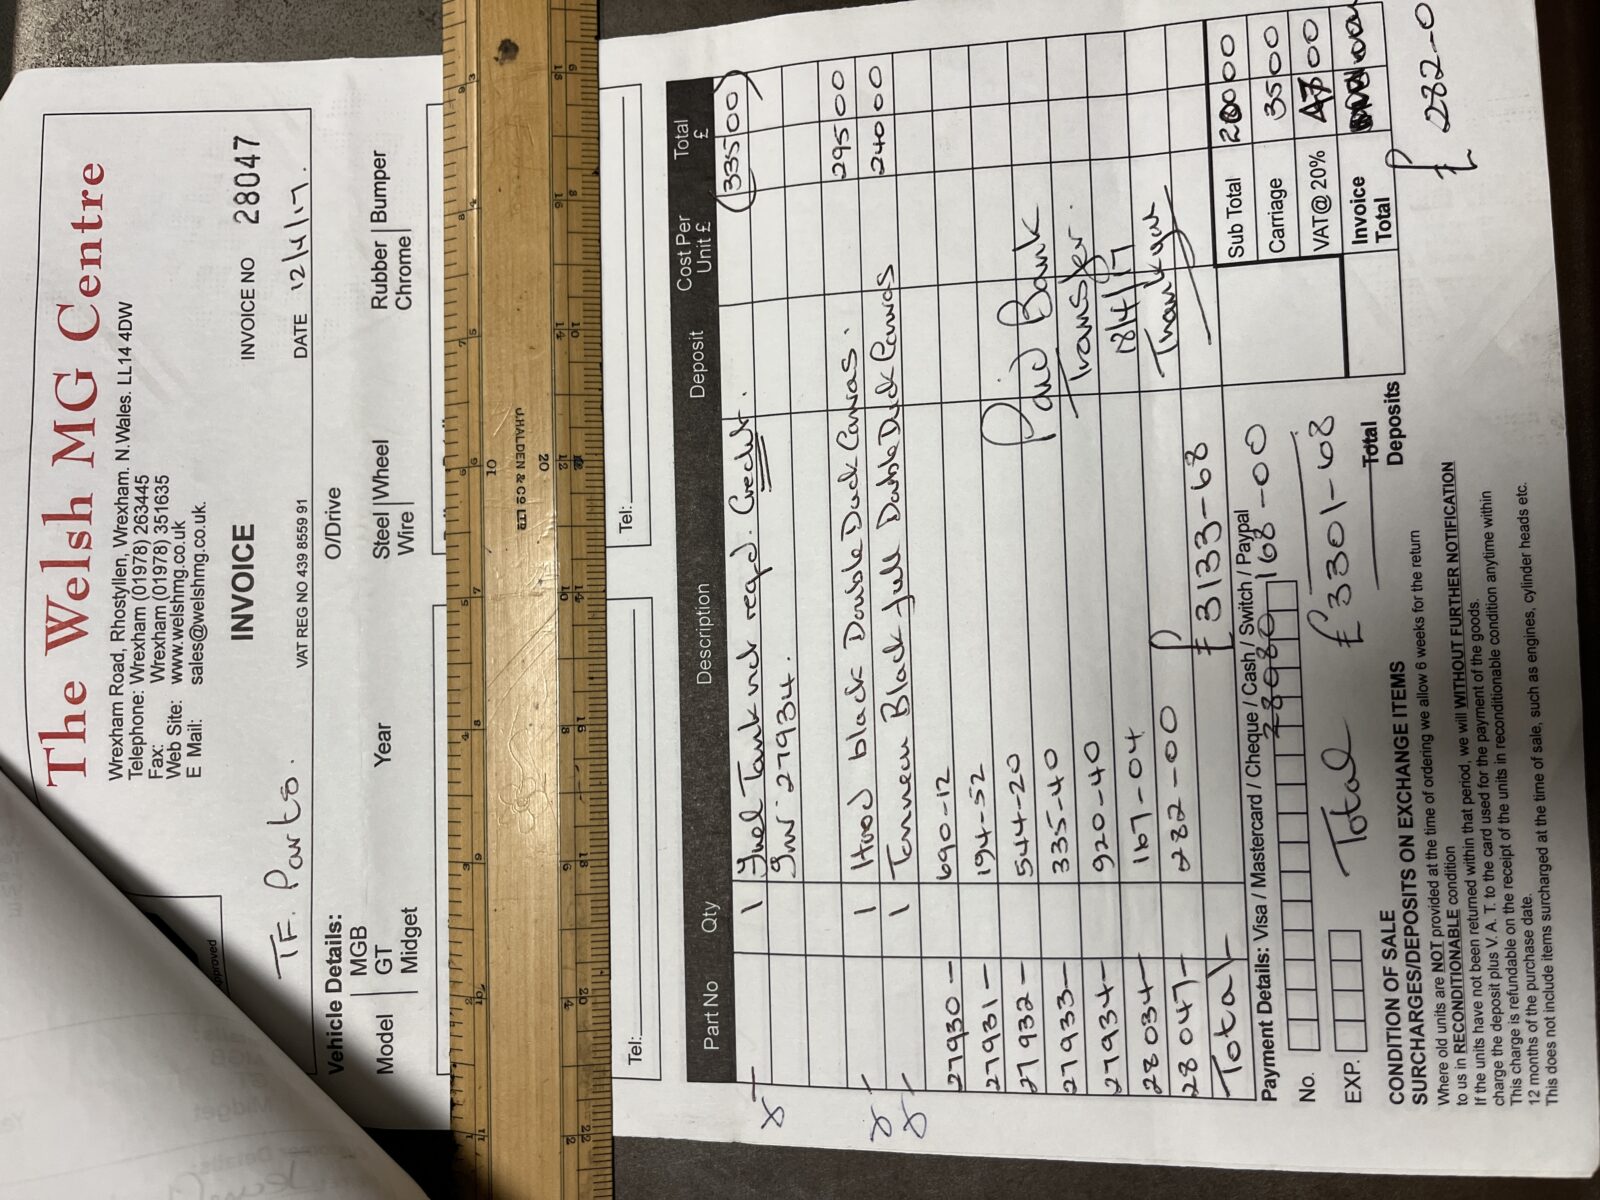 The Welsh MG Centre
Wrexham Road, Rhostyllen, Wrexham. N.Wales. LL14 4DW
Telephone: Wrexham (01978) 263445
Fax: Wrexham (01978) 351635
Web Site: www.welshmg.co.uk
E Mail: sales@welshmg.co.uk.
INVOICE
INVOICE NO 28047
VAT REG NO 439 8559 91
DATE 12/4/17.
TF. Parts.
Vehicle Details:
O/Drive
Model MGB GT Midget
Year
Steel Wheel Wire
Rubber Bumper Chrome
J.HALDEN & CO LTD
Tel:
Tel:
Part No Qty Description Deposit Cost Per Unit £ Total £
1 Fuel Tank not reqd. Credit. (335 00)
Inv 27934.
295 00
1 Hood black Double Duck Canvas. 240 00
1 Tonneau Black full Double Duck Canvas
27930 - 690-12
27931 - 194-52
27932 - 544-20
27933 - 335-40
27934 - 920-40
28034 - 167-04
28047 - 282-00
Total £3133-68
Paid Bank
Transfer.
18/4/17
Thankyou
Sub Total 200 00
Carriage 35 00
VAT@ 20% 47 00
Invoice Total
£ 282-0
Payment Details: Visa / Mastercard / Cheque / Cash / Switch / Paypal
28080 168-00
No.
Total £3301-68
EXP.
Total Deposits
CONDITION OF SALE
SURCHARGES/DEPOSITS ON EXCHANGE ITEMS
Where old units are NOT provided at the time of ordering we allow 6 weeks for the return
to us in RECONDITIONABLE condition
If the units have not been returned within that period, we will WITHOUT FURTHER NOTIFICATION
charge the deposit plus V. A. T. to the card used for the payment of the goods.
This charge is refundable on the receipt of the units in reconditionable condition anytime within
12 months of the purchase date.
This does not include items surcharged at the time of sale, such as engines, cylinder heads etc.